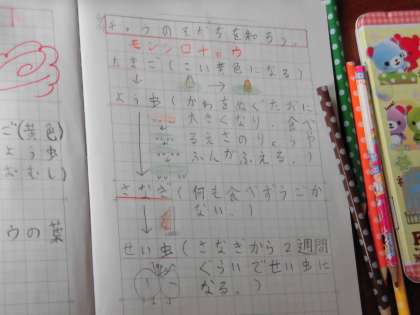 ちょうのそだちを知ろう。
モンシロチョウ
たまご(こい黄色になる)
よう虫(かわをぬぐたびに
大きくなり、食べ
るえさのりょうや
ふんがふえる。)
さなぎ(何も食べずうごか
ない。)
せい虫(さなぎから2週間
ぐらいでせい虫に
なる。)
ご(黄色)
よう虫
おむし)
ウの葉